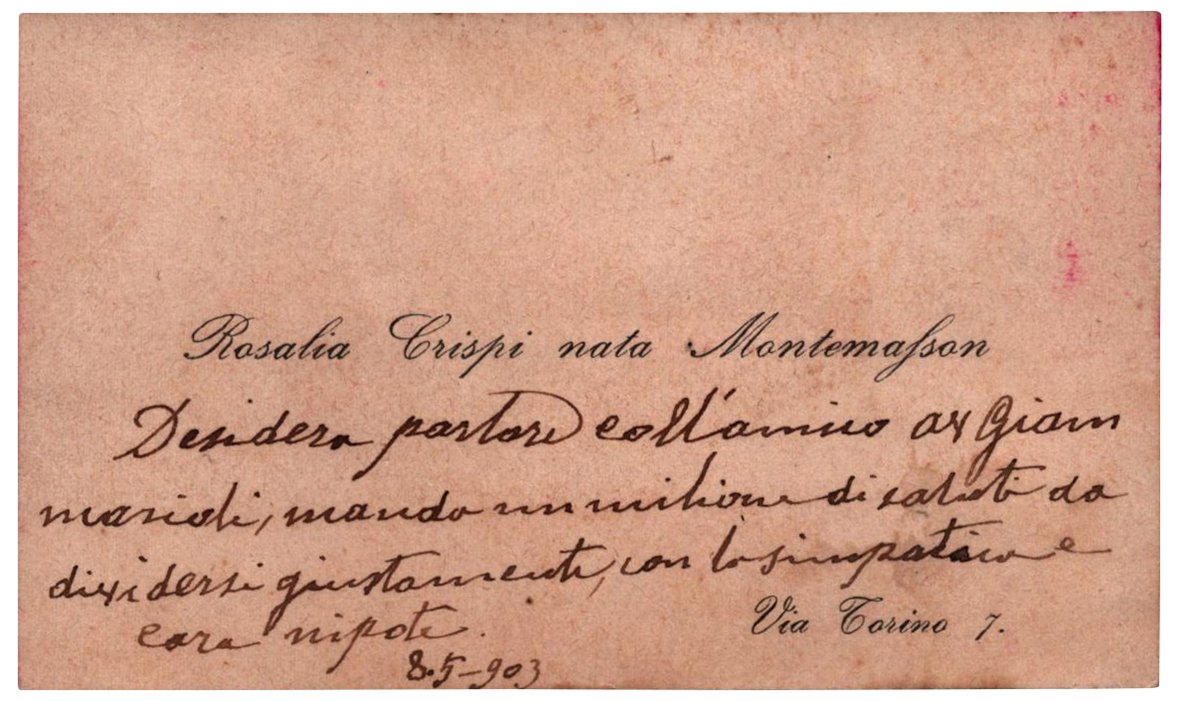 Rosalia Crispi nata Montemasson
Desidera parlare coll'amico av Giam
marioli, manda un milione di saluti da
dividersi giustamente, con la simpatica e
cara nipote.
Via Torino 7.
8.5-903